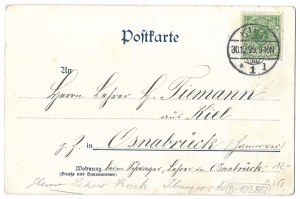 Postkarte
KIEL
30.12.99.9-10N
* 1 J
An
Herrn Lehrer H. Tiemann
aus Kiel
z. Z. in Osnabrück (Hannover)
Wohnung beim Schwager, Lehrer in Osnabrück.
(Straße und Hausnummer)
Herrn Lehrer Koch